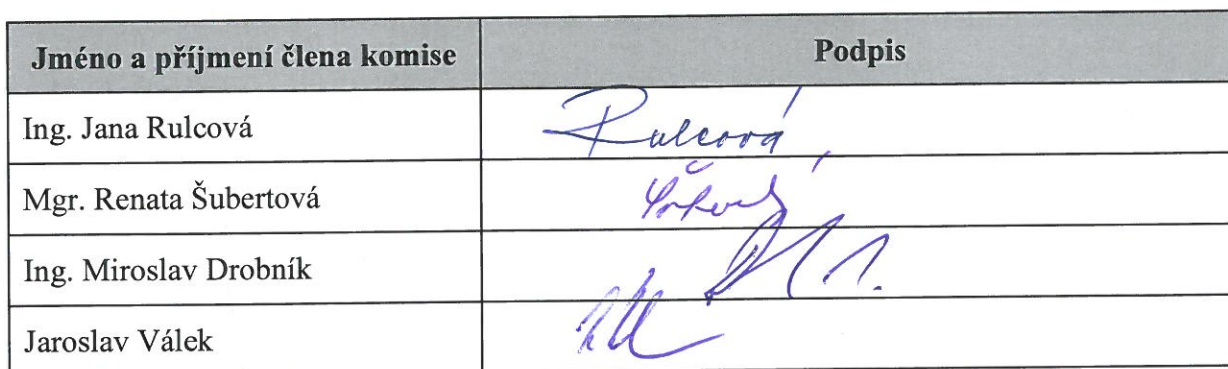 Jméno a příjmení člena komise Podpis
Ing. Jana Rulcová Rulcová
Mgr. Renata Šubertová
Ing. Miroslav Drobník
Jaroslav Válek